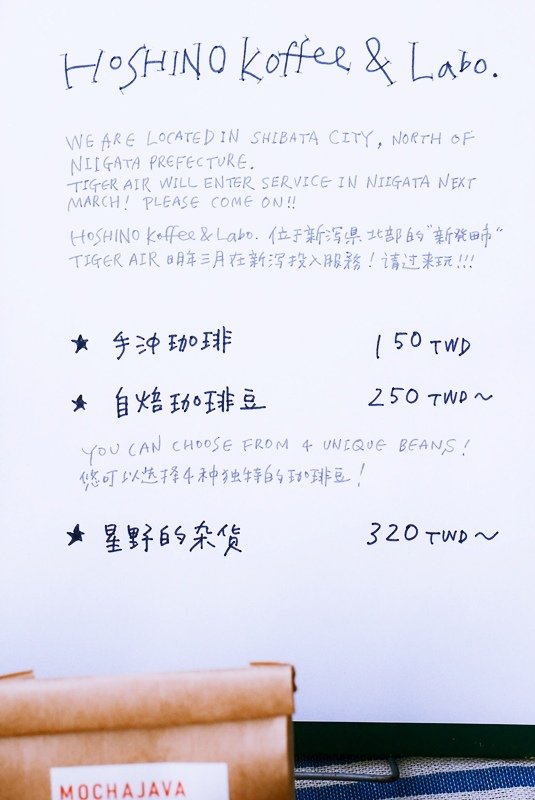 HOSHINO Koffee & Labo.
WE ARE LOCATED IN SHIBATA CITY, NORTH OF
NIIGATA PREFECTURE.
TIGER AIR WILL ENTER SERVICE IN NIIGATA NEXT
MARCH! PLEASE COME ON!!
HOSHINO Koffee & Labo. 位于新泻県北部的"新発田市"
TIGER AIR 明年三月在新泻投入服務! 请过来玩!!!
★ 手沖珈琲 150 TWD
★ 自焙珈琲豆 250 TWD~
YOU CAN CHOOSE FROM 4 UNIQUE BEANS!
您可以选择4种独特的珈琲豆!
★ 星野的杂货 320 TWD~
MOCHAJAVA